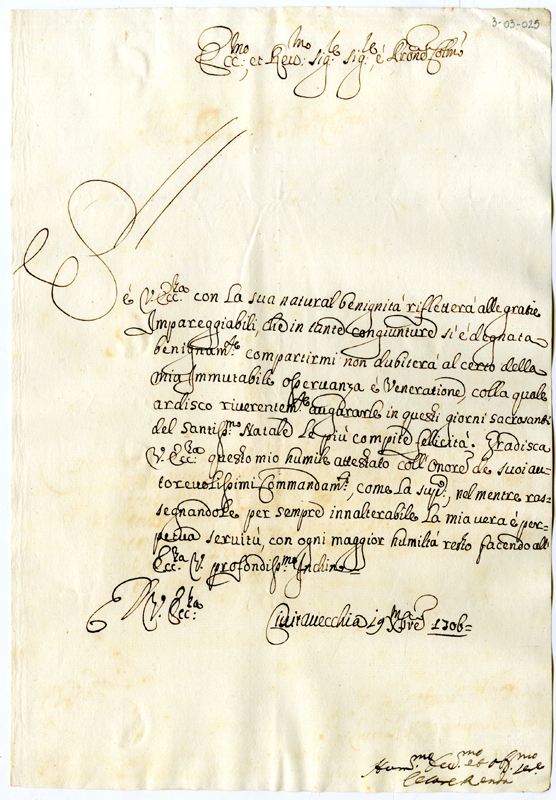 3-03-025
Ecc:mo et Reu:mo sig:re sig:re, é Prone Colmo
Sé V. Ecc:za con La sua natural benignità rifletterà alle gratie
Impareggiabili, che in tante congiunture si é degnata
benignam:te compartirmi non dubiterà al certo della
mia Immutabile osseruanza é Veneratione, colla quale
ardisco riuerentem:te augurarle in questi giorni sacrosanti
del Santiss:mo Natale Le più compite felicità. Gradisca
V. Ecc:za questo mio humile attestato coll'Onore de suoi au=
toreuolissimi Commandam:ti, come La sup:co, nel mentre ras=
segnandole per sempre innalterabile La mia uera é per=
petua seruitù, con ogni maggior humiltà resto facendo all'
Ecc:za V. profondiss:mo Inchino=
Di V. Ecc:za
Ciuitauecchia 19 Xbre 1706=
Hum:mo Deu:mo et obl:mo Ser:e
Cesare